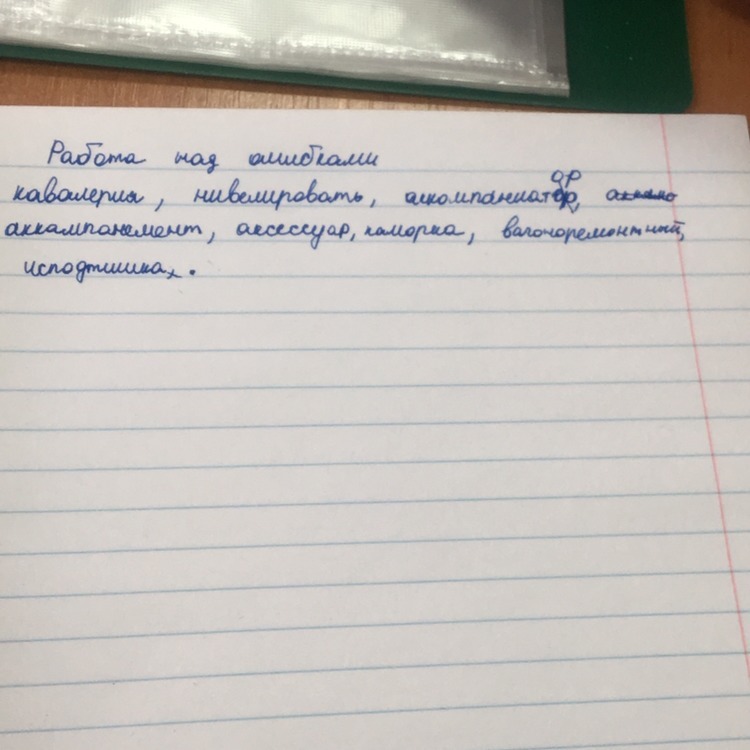 Работа над ошибками
кавалерия, нивелировать, аккомпаниатор,
аккампанемент, аксессуар, каморка, вагоноремонтный,
исподтишка.